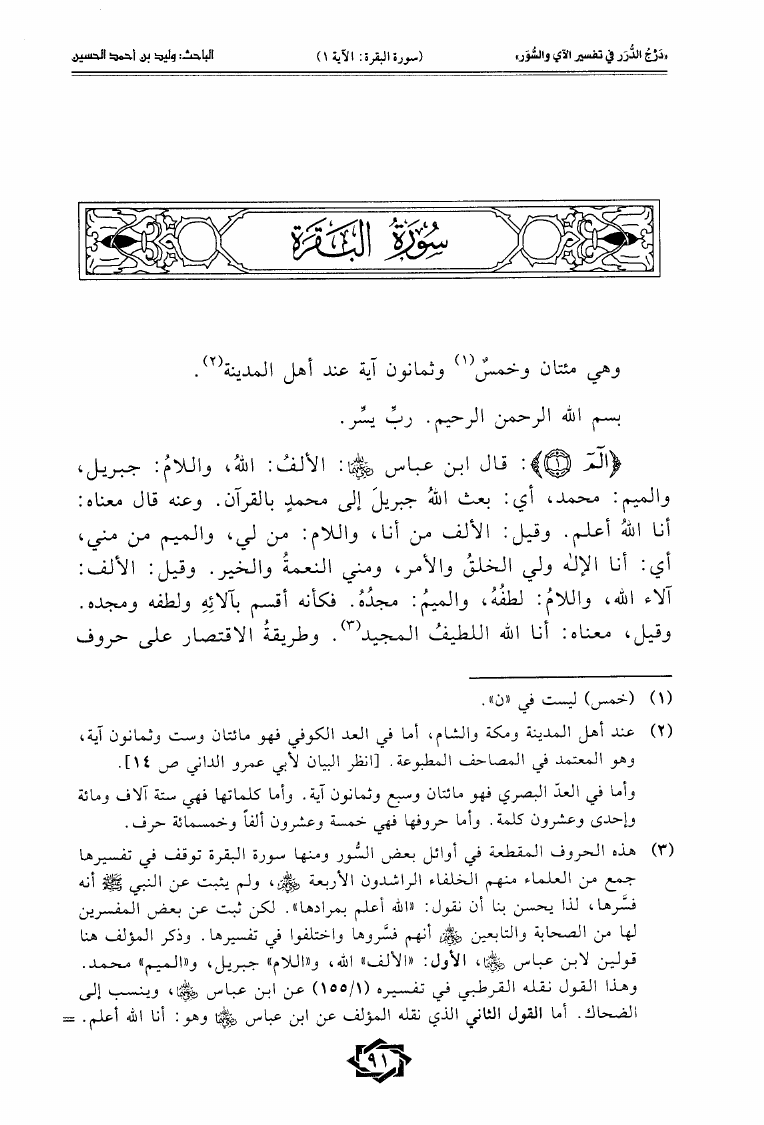 «دَرْجُ الدُّرَر في تفسير الآي والسُّوَر» (سورة البقرة: الآية ١) الباحث: وليد بن أحمد الحسين
سُورَةُ البَقَرَة
وهي مئتان وخمسٌ(١) وثمانون آية عند أهل المدينة(٢).
بسم الله الرحمن الرحيم. ربِّ يسِّر.
﴿الٓمٓ ١﴾: قال ابن عباس ﵄: الألفُ: اللهُ، واللامُ: جبريل،
والميم: محمد، أي: بعث اللهُ جبريلَ إلى محمدٍ بالقرآن. وعنه قال معناه:
أنا اللهُ أعلم. وقيل: الألف من أنا، واللام: من لي، والميم من مني،
أي: أنا الإلٰه ولي الخلقُ والأمر، ومني النعمةُ والخير. وقيل: الألف:
آلاء الله، واللامُ: لطفُهُ، والميمُ: مجدُهُ. فكأنه أقسم بآلائِهِ ولطفه ومجده.
وقيل، معناه: أنا الله اللطيفُ المجيد(٣). وطريقةُ الاقتصار على حروف
(١) (خمس) ليست في «ن».
(٢) عند أهل المدينة ومكة والشام، أما في العد الكوفي فهو مائتان وست وثمانون آية،
وهو المعتمد في المصاحف المطبوعة. [انظر البيان لأبي عمرو الداني ص ١٤].
وأما في العدّ البصري فهو مائتان وسبع وثمانون آية. وأما كلماتها فهي ستة آلاف ومائة
وإحدى وعشرون كلمة. وأما حروفها فهي خمسة وعشرون ألفاً وخمسمائة حرف.
(٣) هذه الحروف المقطعة في أوائل بعض السُّور ومنها سورة البقرة توقف في تفسيرها
جمع من العلماء منهم الخلفاء الراشدون الأربعة ﵃، ولم يثبت عن النبي ﷺ أنه
فسَّرها، لذا يحسن بنا أن نقول: «الله أعلم بمرادها». لكن ثبت عن بعض المفسرين
لها من الصحابة والتابعين ﵃ أنهم فسَّروها واختلفوا في تفسيرها. وذكر المؤلف هنا
قولين لابن عباس ﵄، الأول: «الألف» الله، و«اللام» جبريل، و«الميم» محمد.
وهذا القول نقله القرطبي في تفسيره (١٥٥/١) عن ابن عباس ﵄، وينسب إلى
الضحاك. أما القول الثاني الذي نقله المؤلف عن ابن عباس ﵄ وهو: أنا الله أعلم. =
٩١